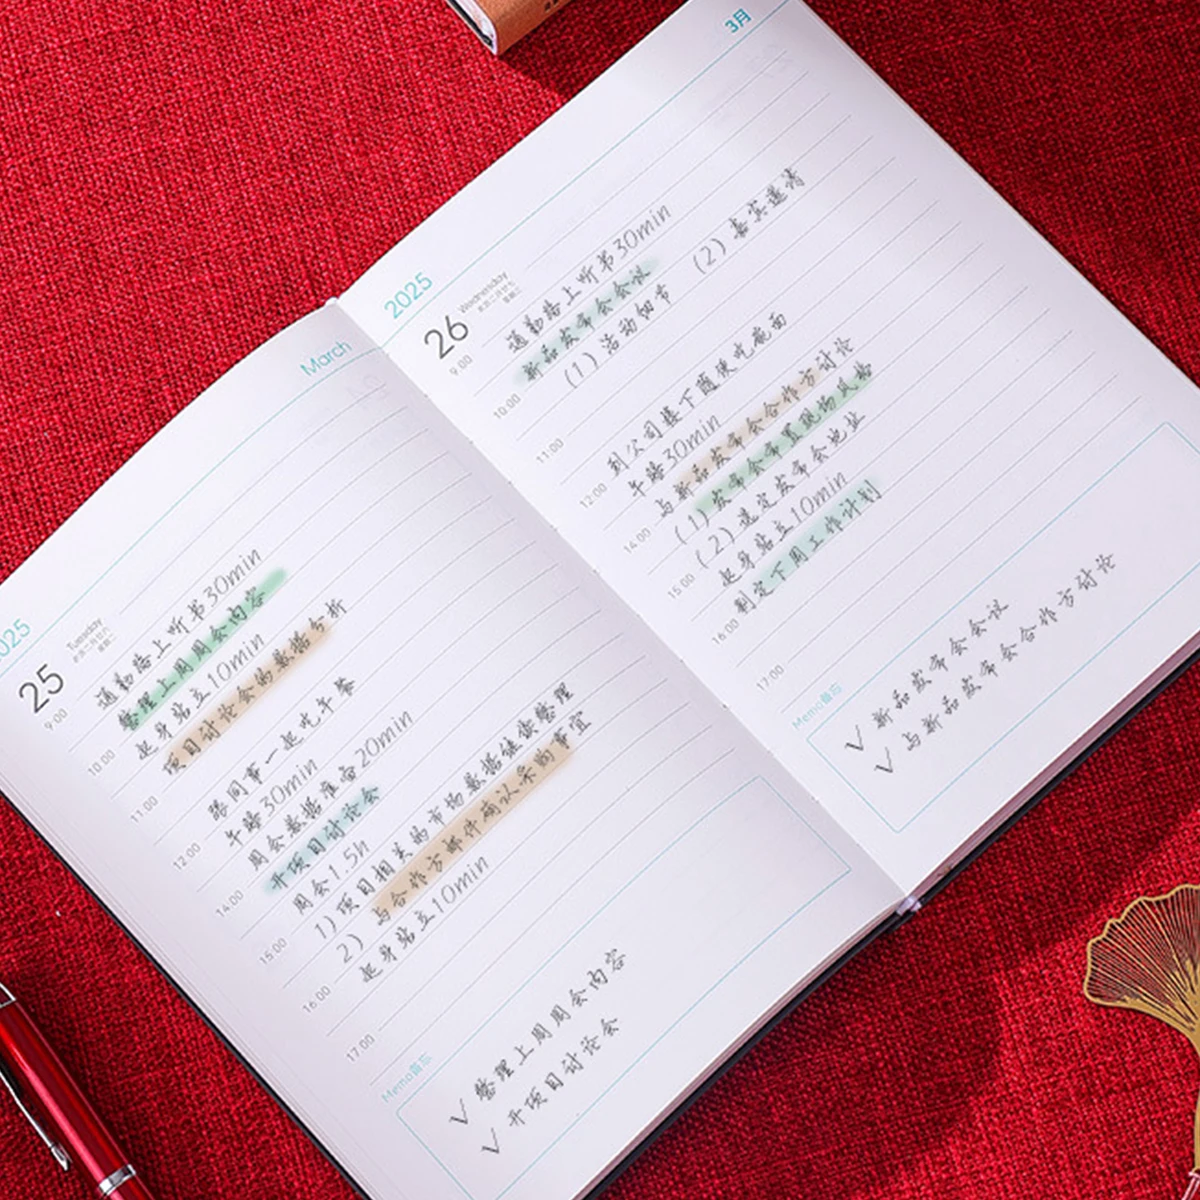 2025
March
25
Tuesday
农历二月廿六
星期二
9:00
10:00
11:00
12:00
14:00
15:00
16:00
17:00
通勤路上听书30min
整理上周周会内容
起身站立10min
项目讨论会的数据分析
跟同事一起吃午餐
午睡30min
周会数据准备20min
开项目讨论会
周会1.5h
1）项目相关的市场数据继续整理
2）与合作方邮件确认采购事宜
起身站立10min
Memo备忘
√ 整理上周周会内容
√ 开项目讨论会
2025
3月
26
Wednesday
农历二月廿七
星期三
9:00
10:00
11:00
12:00
14:00
15:00
16:00
17:00
通勤路上听书30min
新品发布会会议
（1）活动细节 （2）嘉宾邀请
到公司楼下随便吃碗面
午睡30min
与新品发布会合作方讨论
（1）发布会布置现场风格
（2）选定发布会地址
起身站立10min
制定下周工作计划
Memo备忘
√ 新品发布会会议
√ 与新品发布会合作方讨论